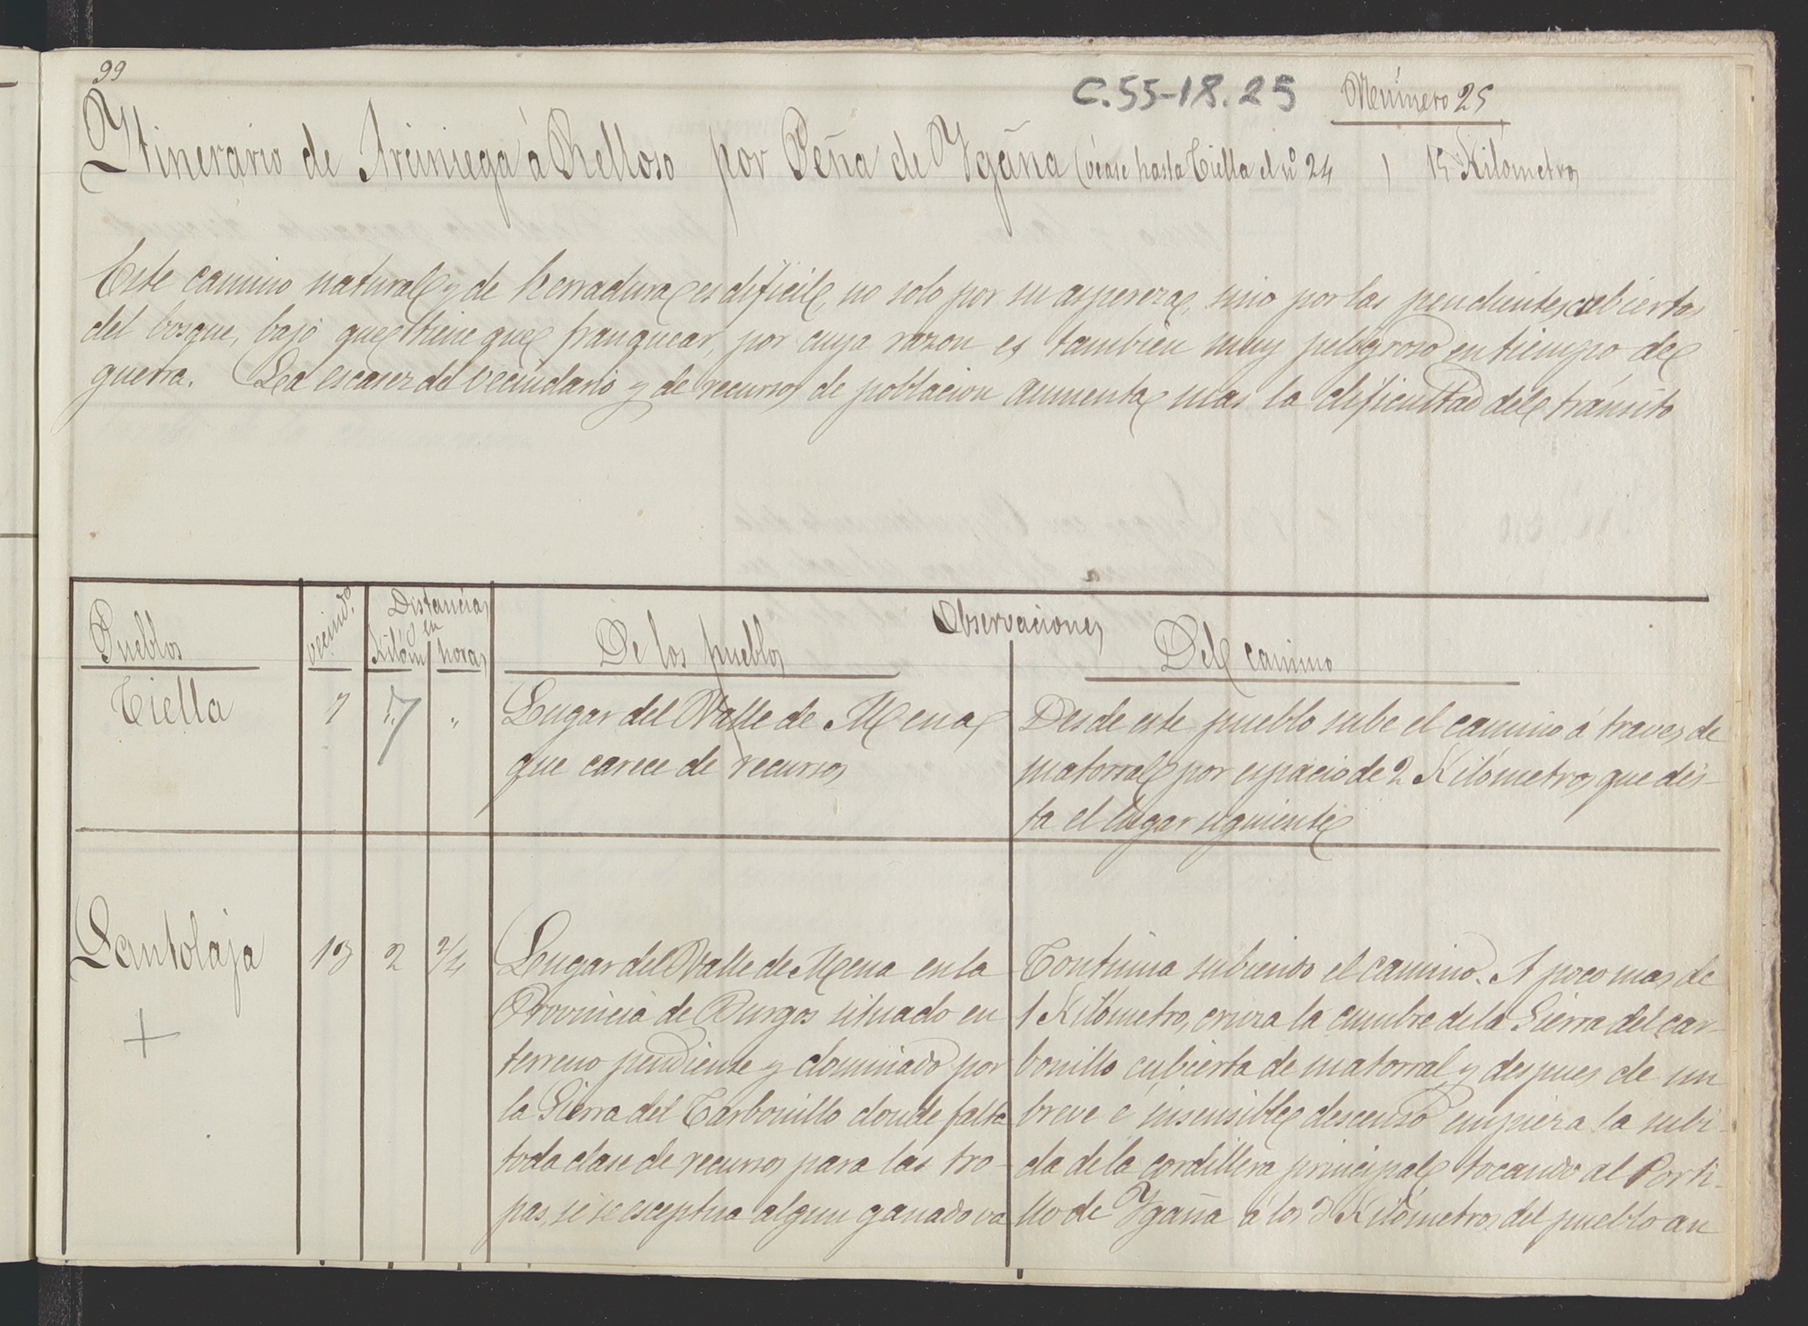 99
C.55-18.25
Número 25
Ytinerario de Arciniega á Relloso por Peña de Ygaña (véase hasta Ciella el nº 24 ) 15 Kilómetros
Este camino natural y de herradura es dificil, no solo por su aspereza, sino por las pendientes, cubiertas
del bosque, bajo que tiene que franquear, por cuya razon es tambien muy peligroso en tiempo de
guerra. La escasez del vecindario y de recursos de poblacion aumenta mas la dificultad del tránsito
Pueblos
vecind.º
Distancias en
Kilóm
horas
Observaciones
De los pueblos
Del camino
Ciella
7
7
"
Lugar del Valle de Mena
que carece de recursos
Desde este pueblo sube el camino á traves de
matorral por espacio de 2 Kilómetros que dis-
ta el lugar siguiente
Lantolaja
13
2
2/4
+
Lugar del Valle de Mena en la
Provincia de Burgos situado en
terreno pendiente y dominado por
la Sierra del Carbonillo donde falta
toda clase de recursos para las tro-
pas, si se esceptua algun ganado va
Continúa subiendo el camino. A poco mas de
1 Kilómetro, cruza la cumbre de la Sierra del car-
bonillo cubierta de matorral y despues de un
breve é insensible descenso empieza la subi-
da de la cordillera principal tocando al Porti-
llo de Ygaña á los 3 Kilómetros del pueblo an